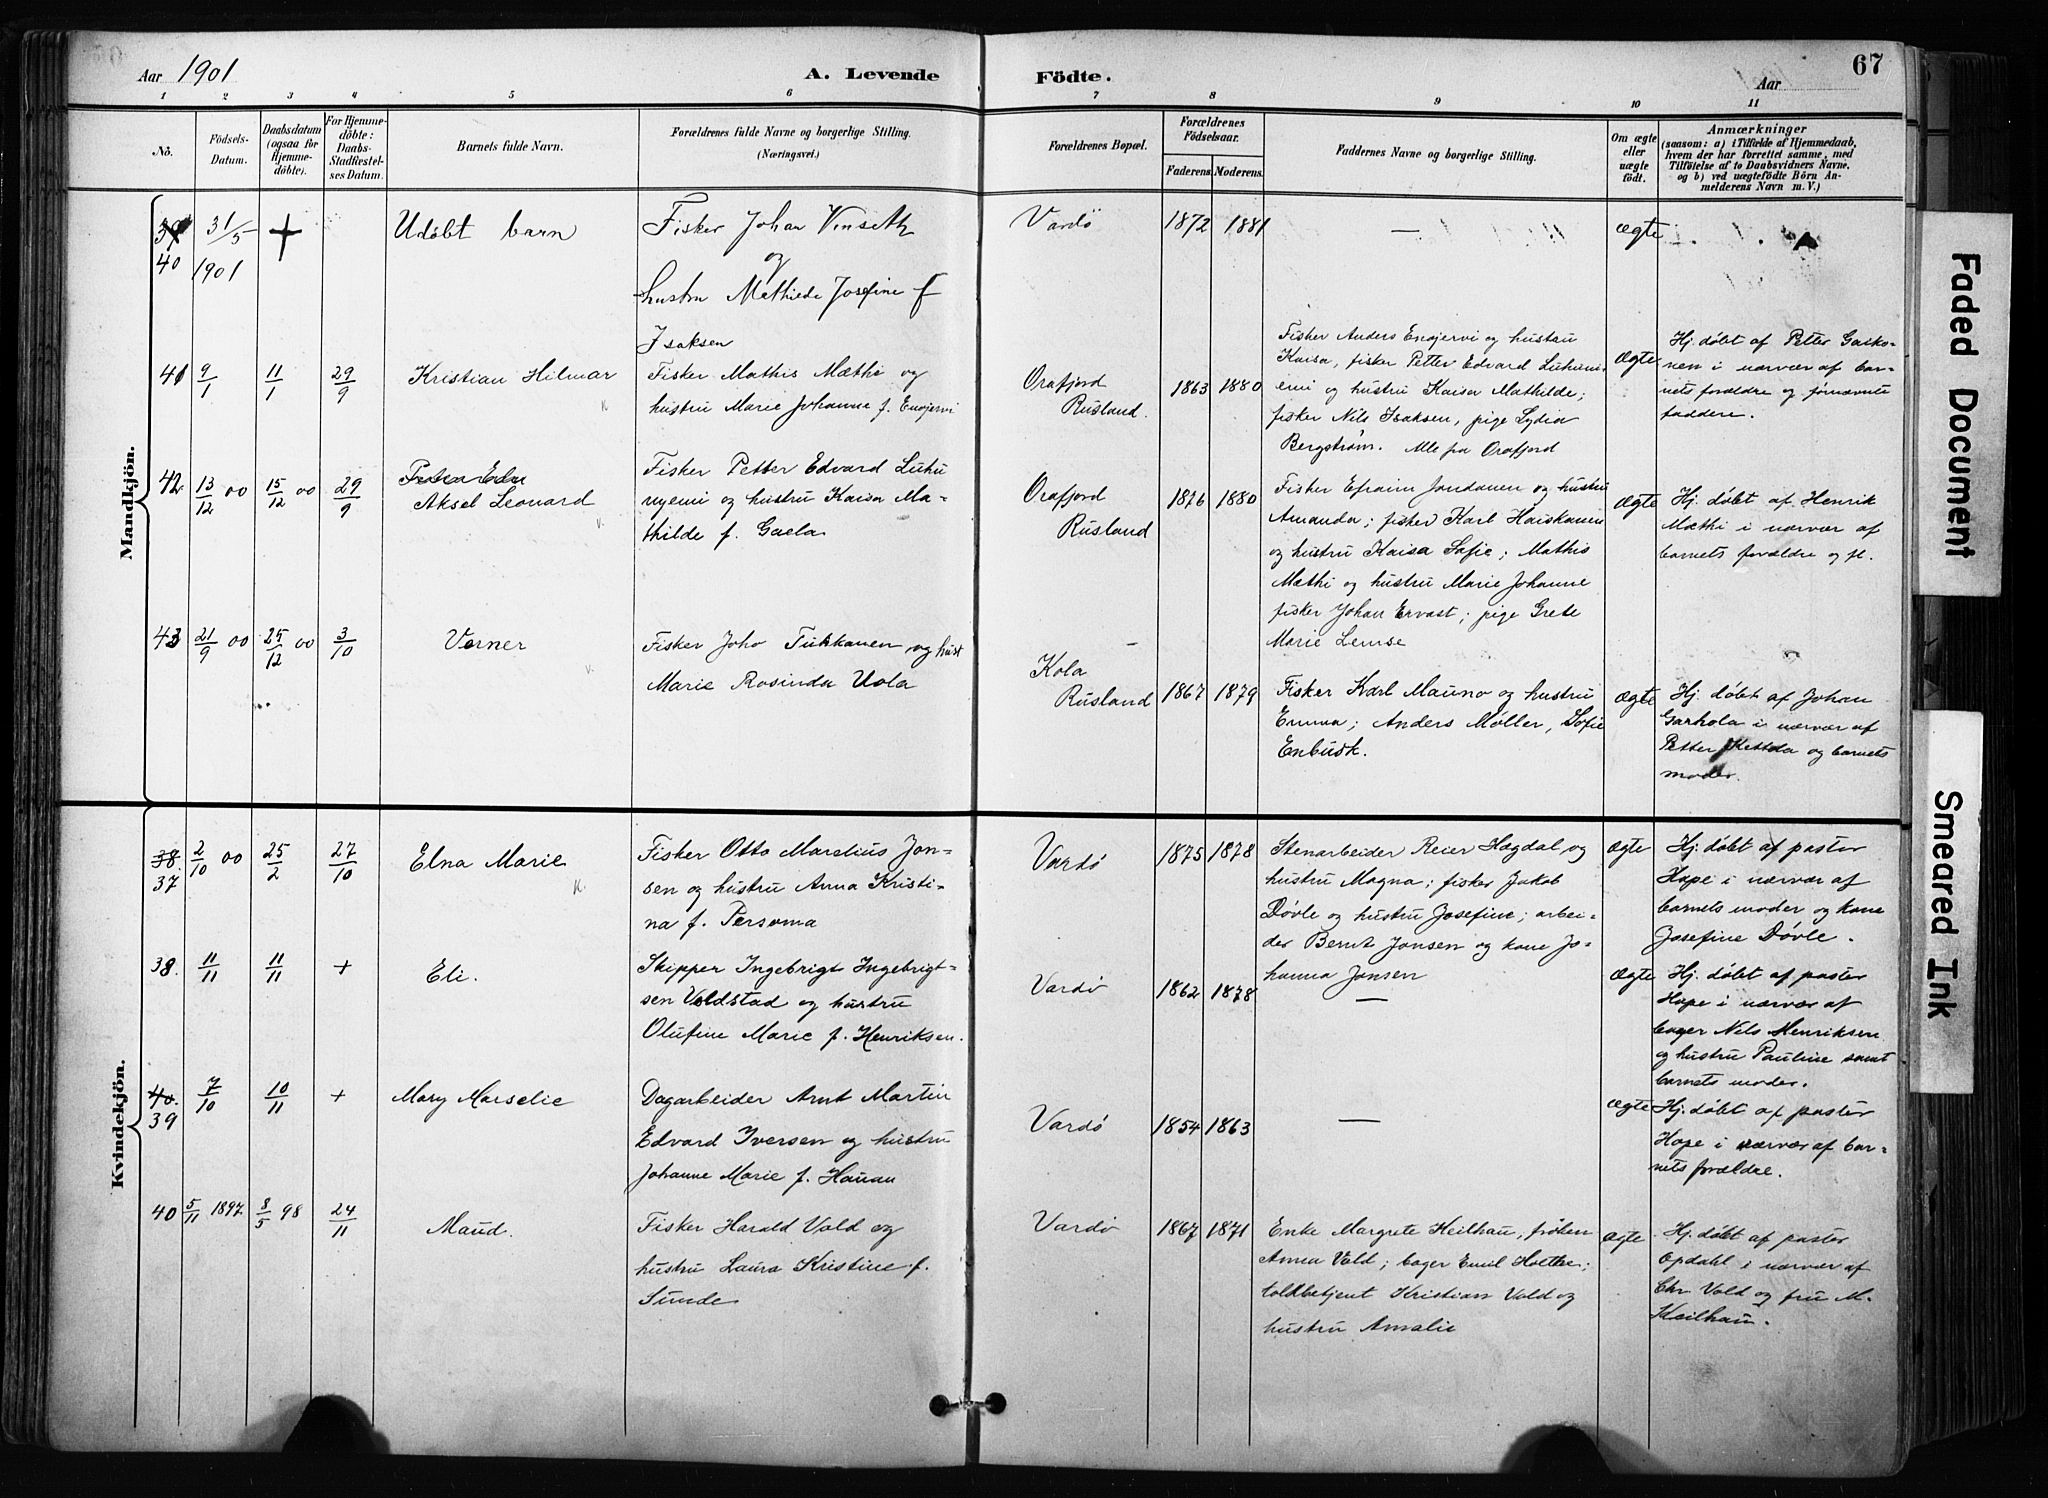 Aar 1901
A. Levende
Födte.
Aar
67
1 2 3 4 5 6 7 8 9 10 11
No.
Födsels-
Datum.
Daabsdatum
(ogsaa for
Hjemme-
döbte).
For Hjemme-
döbte:
Daabs-
Stadfæstel-
ses Datum.
Barnets fulde Navn.
Forældrenes fulde Navne og borgerlige Stilling.
(Næringsvei.)
Forældrenes Bopæl.
Forældrenes
Födselsaar.
Faderens. Moderens.
Faddernes Navne og borgerlige Stilling.
Om ægte
eller
uægte
födt.
Anmærkninger
(saasom: a) i Tilfælde af Hjemmedaab,
hvem der har forrettet samme, med
Tilföielse af to Daabsvidners Navne,
og b) ved uægtefödte Börn An-
melderens Navn m. V.)
Mandkjön.
39
40
31/5
1901
+
Udøbt barn
Fisker Johan Vinseth
og
hustru Mathilde Josefine f
Isaksen
Vardø
1872 1881
—
Ægte
41
9/1
11/1
29/9
Kristian Hilmar
Fisker Mathis Mæthi og
hustru Marie Johanne f. Enojervi
Orafjord
Rusland.
1863 1880
Fisker Anders Enojervi og hustru
Kaisa, fisker Petter Edvard Luhuni-
emi og hustru Kaisa Mathilde;
fisker Nils Isaksen, pige Lydia
Bergstrøm. Alle fra Orafjord
Ægte
Hj. døbt af Petter Gasko-
nen i nærvær af bar-
nets forældre og førnævnte
faddere.
42
13/12 00
15/12 00
29/9
Aksel Leonard
Fisker Petter Edvard Luhu
nyemi og hustru Kaisa Ma-
thilde f. Gaela
Orafjord
Rusland
1876 1880
Fisker Efraim Jondanen og hustru
Amanda; fisker Karl Haiskanen
og hustru Kaisa Sofie; Mathis
Mæthi og hustru Marie Johanne
fisker Johan Ervast; pige Grete
Marie Lemse
Ægte
Hj. døbt af Henrik
Mæthi i nærvær af
barnets forældre og fl.
43
21/9 00
25/12 00
3/10
Verner
Fisker Joho Tukkanen og hust
Marie Rosinda Uola
Kola
Rusland
1867 1879
Fisker Karl Mauno og hustru
Emma; Anders Møller, Sofie
Enbusk.
Ægte
Hj. døbt af Johan
Garhola i nærvær af
Petter Kettola og barnets
moder.
Kvindekjön.
38.
37
2/10 00
25/2
27/10
Elna Marie
Fisker Otto Marelius Jon-
sen og hustru Anna Kristi-
na f. Persoma
Vardø
1875 1878
Stenarbeider Reier Hægdal og
hustru Magna; fisker Jakob
Døvle og hustru Josefine; arbei-
der Bernt Jonsen og kone Jo-
hanna Jonsen
Ægte
Hj. døbt af pastor
Hope i nærvær af
barnets moder og kone
Josefine Døvle.
38.
11/11
11/11
+
Eli.
Skipper Ingebrigt Ingebrigt-
sen Voldstad og hustru
Olufine Marie f. Henriksen.
Vardø
1862 1878
—
Ægte
Hj. døbt af pastor
Hope i nærvær af
bager Nils Henriksen
og hustru Pauline samt
barnets moder.
40.
39
7/10
10/11
+
Mary Marselie
Dagarbeider Arnt Martin
Edvard Iversen og hustru
Johanne Marie f. Hauan
Vardø
1854 1863
—
Ægte
Hj. døbt af pastor
Hope i nærvær af bar-
nets forældre.
40
5/11 1897
8/5 98
24/11
Maud.
Fisker Harald Vold og
hustru Laura Kristine f.
Sunde
Vardø
1867 1871
Enke Margrete Keilhau, frøken
Anna Vold; bager Emil Holthe;
toldbetjent Kristian Vold og
hustru Amalie
Ægte
Hj. døbt af pastor
Opdahl i nærvær af
Chr Vold og fru M.
Keilhau.
Faded Document
Smeared Ink